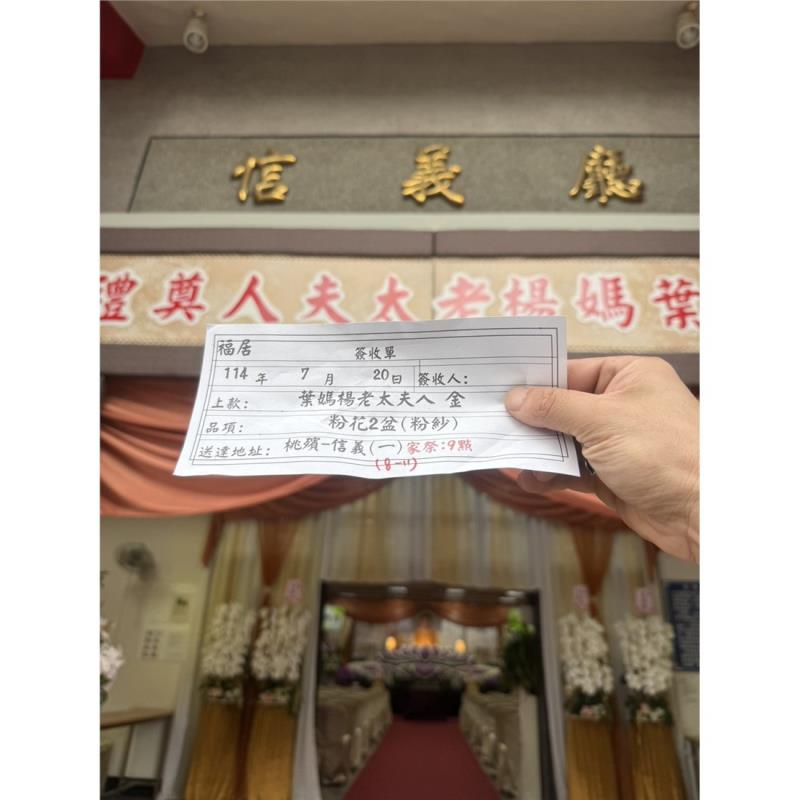 信義廳
葉媽楊老太夫人奠禮
福居 簽收單
114 年 7 月 20日 簽收人:
上款: 葉媽楊老太夫人 金
品項: 粉花2盆(粉紗)
送達地址: 桃殯-信義(一)家祭:9點
(8-11)